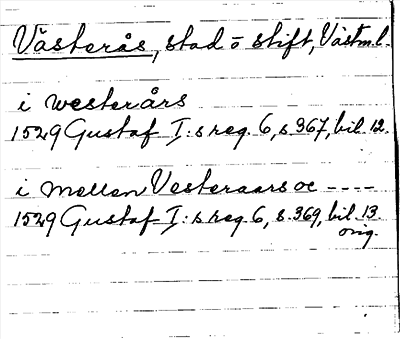 Västerås, stad o stift, Västml.
i westerårs
1529 Gustaf I:s reg. 6, s. 367, bil. 12.
i mellen Vesteraars oc ----
1529 Gustaf I:s reg. 6, s. 369, bil. 13.
orig.